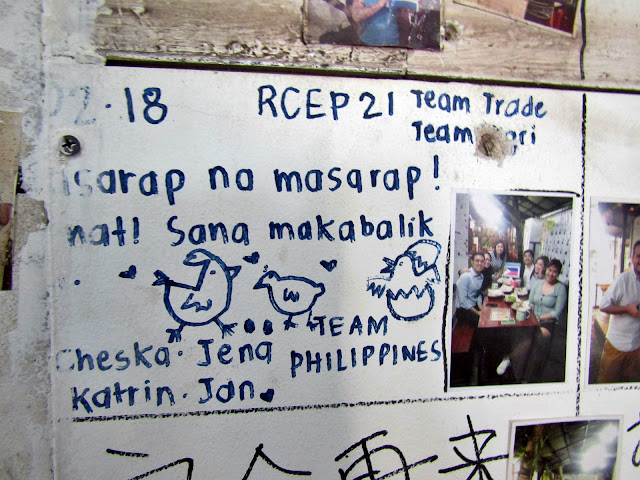 2.18 RCEP 21 Team Trade
Team
sarap na masarap!
nat! Sana makabalik
TEAM
PHILIPPINES
Cheska. Jena
Katrin. Jan.
再来